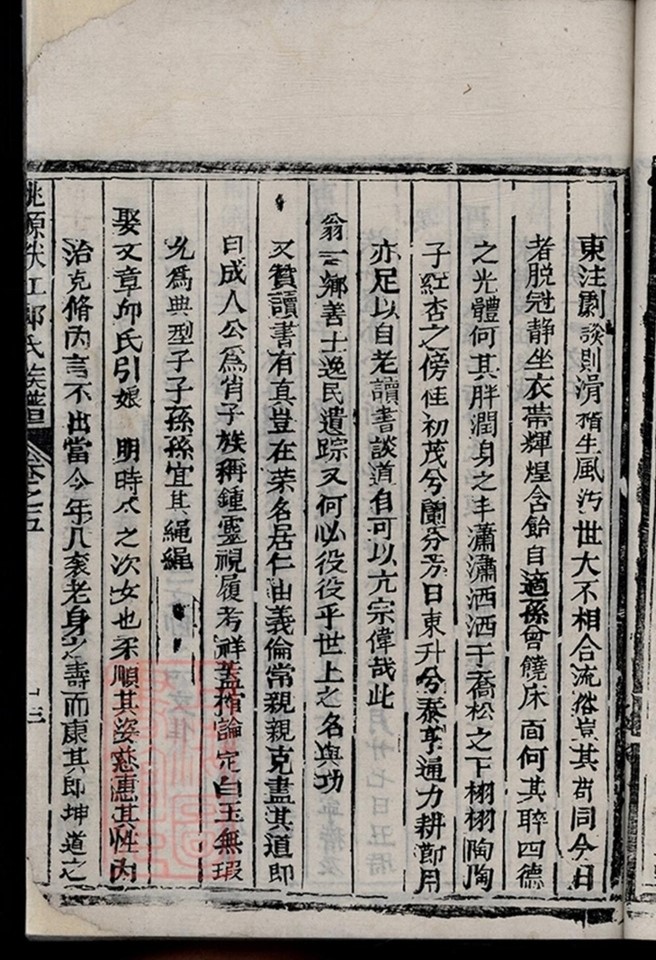 東注劇談則滑稽生風汚世大不相合流俗豈其苟同今日
者脫冠静坐衣帶輝煌含飴自適孫曾饒床面何其睟四德
之光體何其胖潤身之丰瀟瀟洒洒于喬松之下栩栩陶陶
子紅杏之傍佳初茂兮蘭芬芳日東升兮泰亨通力耕節用
亦足以自老讀書談道自可以亢宗偉哉此
翁一鄉善士逸民遺踪又何必役役乎世上之名與功
又賛讀書有真豈在荣名居仁由義倫常親親克盡其道即
曰成人公為肖子族稱鍾靈視履考祥蓋棺論定白玉無瑕
允為典型子子孫孫宜其繩繩
娶文章邱氏引娘 明時公之次女也柔順其姿慈惠其性内
治克脩内言不出當今年几衮老身必壽而康其即坤道之
桃源江氏族譜 卷之五 十三